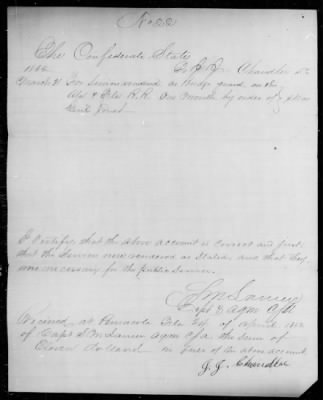 No 22
The Confederate States
1862 To J. J. Chandler Dr
March 31 For Services rendered as Bridge guard, on the
Ala & Fla R.R. One Month by order of
I Certify that the above account is correct and just
that the Services were rendered as Stated, and that they
were necessary for the public Service.
Capt & AQM
Received at Pensacola Fla of April 1862
of Capt AQM the Sum of
Eleven Dollars in full of the above account
J. J. Chandler